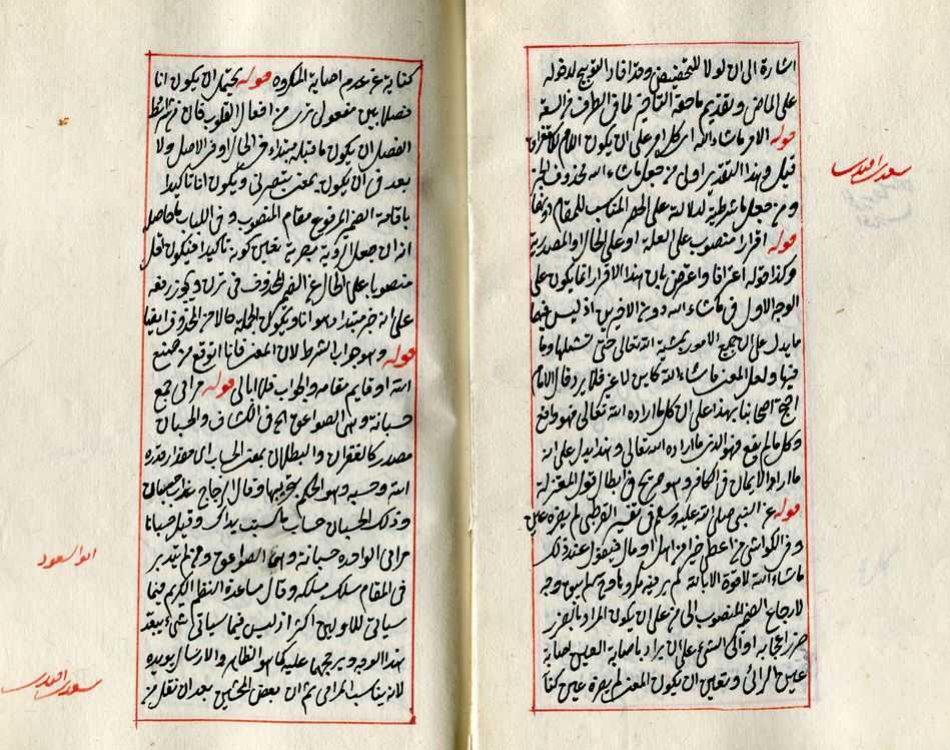 اشارة الى ان لولا للتحضيض وقد افاد التوبيخ لدخوله
على الماضى وتقديم ما حقه التأخير لما فى الظرف من السعة
قوله الامر ما شاء الله اى كل امر على ان يكون اللام للاستغراق
قيل وهذا التقدير اولى من جعل ما شاء الله محذوف الخبر
ومن جعل ما شرطية لدلالته على الحصر المناسب للمقام
قوله اقرارا منصوب على العلة او على الحال او المصدرية
وكذا قوله اعترافا واعترض بان هذا الاقرار انما يكون على
الوجه الاول فى ما شاء الله دون الاخيرين اذ ليس فيهما
ما يدل على ان جميع الامور بمشية الله تعالى حتى تشملها وما
فيها ولعل المعنى ما شاء الله كاين لا غير فلا يرد قال الامام
احتج اصحابنا بهذا على ان كل ما اراده الله تعالى فهو واقع
وكل ما لم يقع فهو الذى ما اراده الله تعالى وهذا يدل على انه
ما اراد الايمان من الكافر وهو صريح فى ابطال قول المعتزلة
قوله عن النبى صلى الله عليه وسلم فى تفسير القرطبى لم يضره عين
وفى الكواشى من اعطى خيرا من اهل او مال فيقول عند ذلك
ما شاء الله لا قوة الا بالله لم ير فيه مكروها وحكم بسق وجه
لارجاع الضمير المنصوب الى من على ان يكون المراد بالضرر
ضرر اعجابه او الى الشىء على ان يراد باصابة العين اصابة
عين الرائى وتعين ان يكون المعنى لم يضره عين كنا
سعدى افندى
كناية عن عدم اصابة المكروه قوله يحتمل ان يكون انا
فصلا بين مفعولى ترى من افعال القلوب فان من شرط
الفصل ان يكون ما قبله مبتداء فى الحال او فى الاصل ولا
بعد فى ان يكون بمعنى بتصرنى ويكون انا تاكيدا
باقامة الضمير المرفوع مقام المنصوب وفى اللباب ما حاصله
انه ان جعل الروية بصرية تعين كونه تاكيدا فيكون اقل
منصوبا على الحال عن الضمير المحذوف فى ترن ويجوز رفعه
على انه خبر مبتداء هو انا ويكون الجملة حالا من المحذوف ايضا
قوله وهو جواب الشرط لان المعنى فانا اتوقع من صنيع
الله او قايم مقامه والجواب فلا ابالى قوله مرامى جمع
حسبانة وهى الصواعق الخ فى الكشاف والحسبان
مصدر كالغفران والبطلان بمعنى الحساب اى مقدارا قدره
الله وحسبه وهو الحكم بتخريبها وقال الزجاج عذاب حسبان
وذلك الحسبان حساب ما كسبت يداك وقيل حسبانا
مرامى الواحدة حسبانة وهى الصواعق ومن لم يتدبر
فى المقام سلك مسلكه وقال مساعدة النظم الكريم فيما
سياتى للاولين اكثر اذ ليس فيما سياتى شىء يبعد
هذا الوجه ويرجحها عليه كما هو الظاهر والارسال يويده
لانه يناسب المرامى ثم ان بعض المحشين بعد ان نقل من
ابو السعود
سعدى افندى